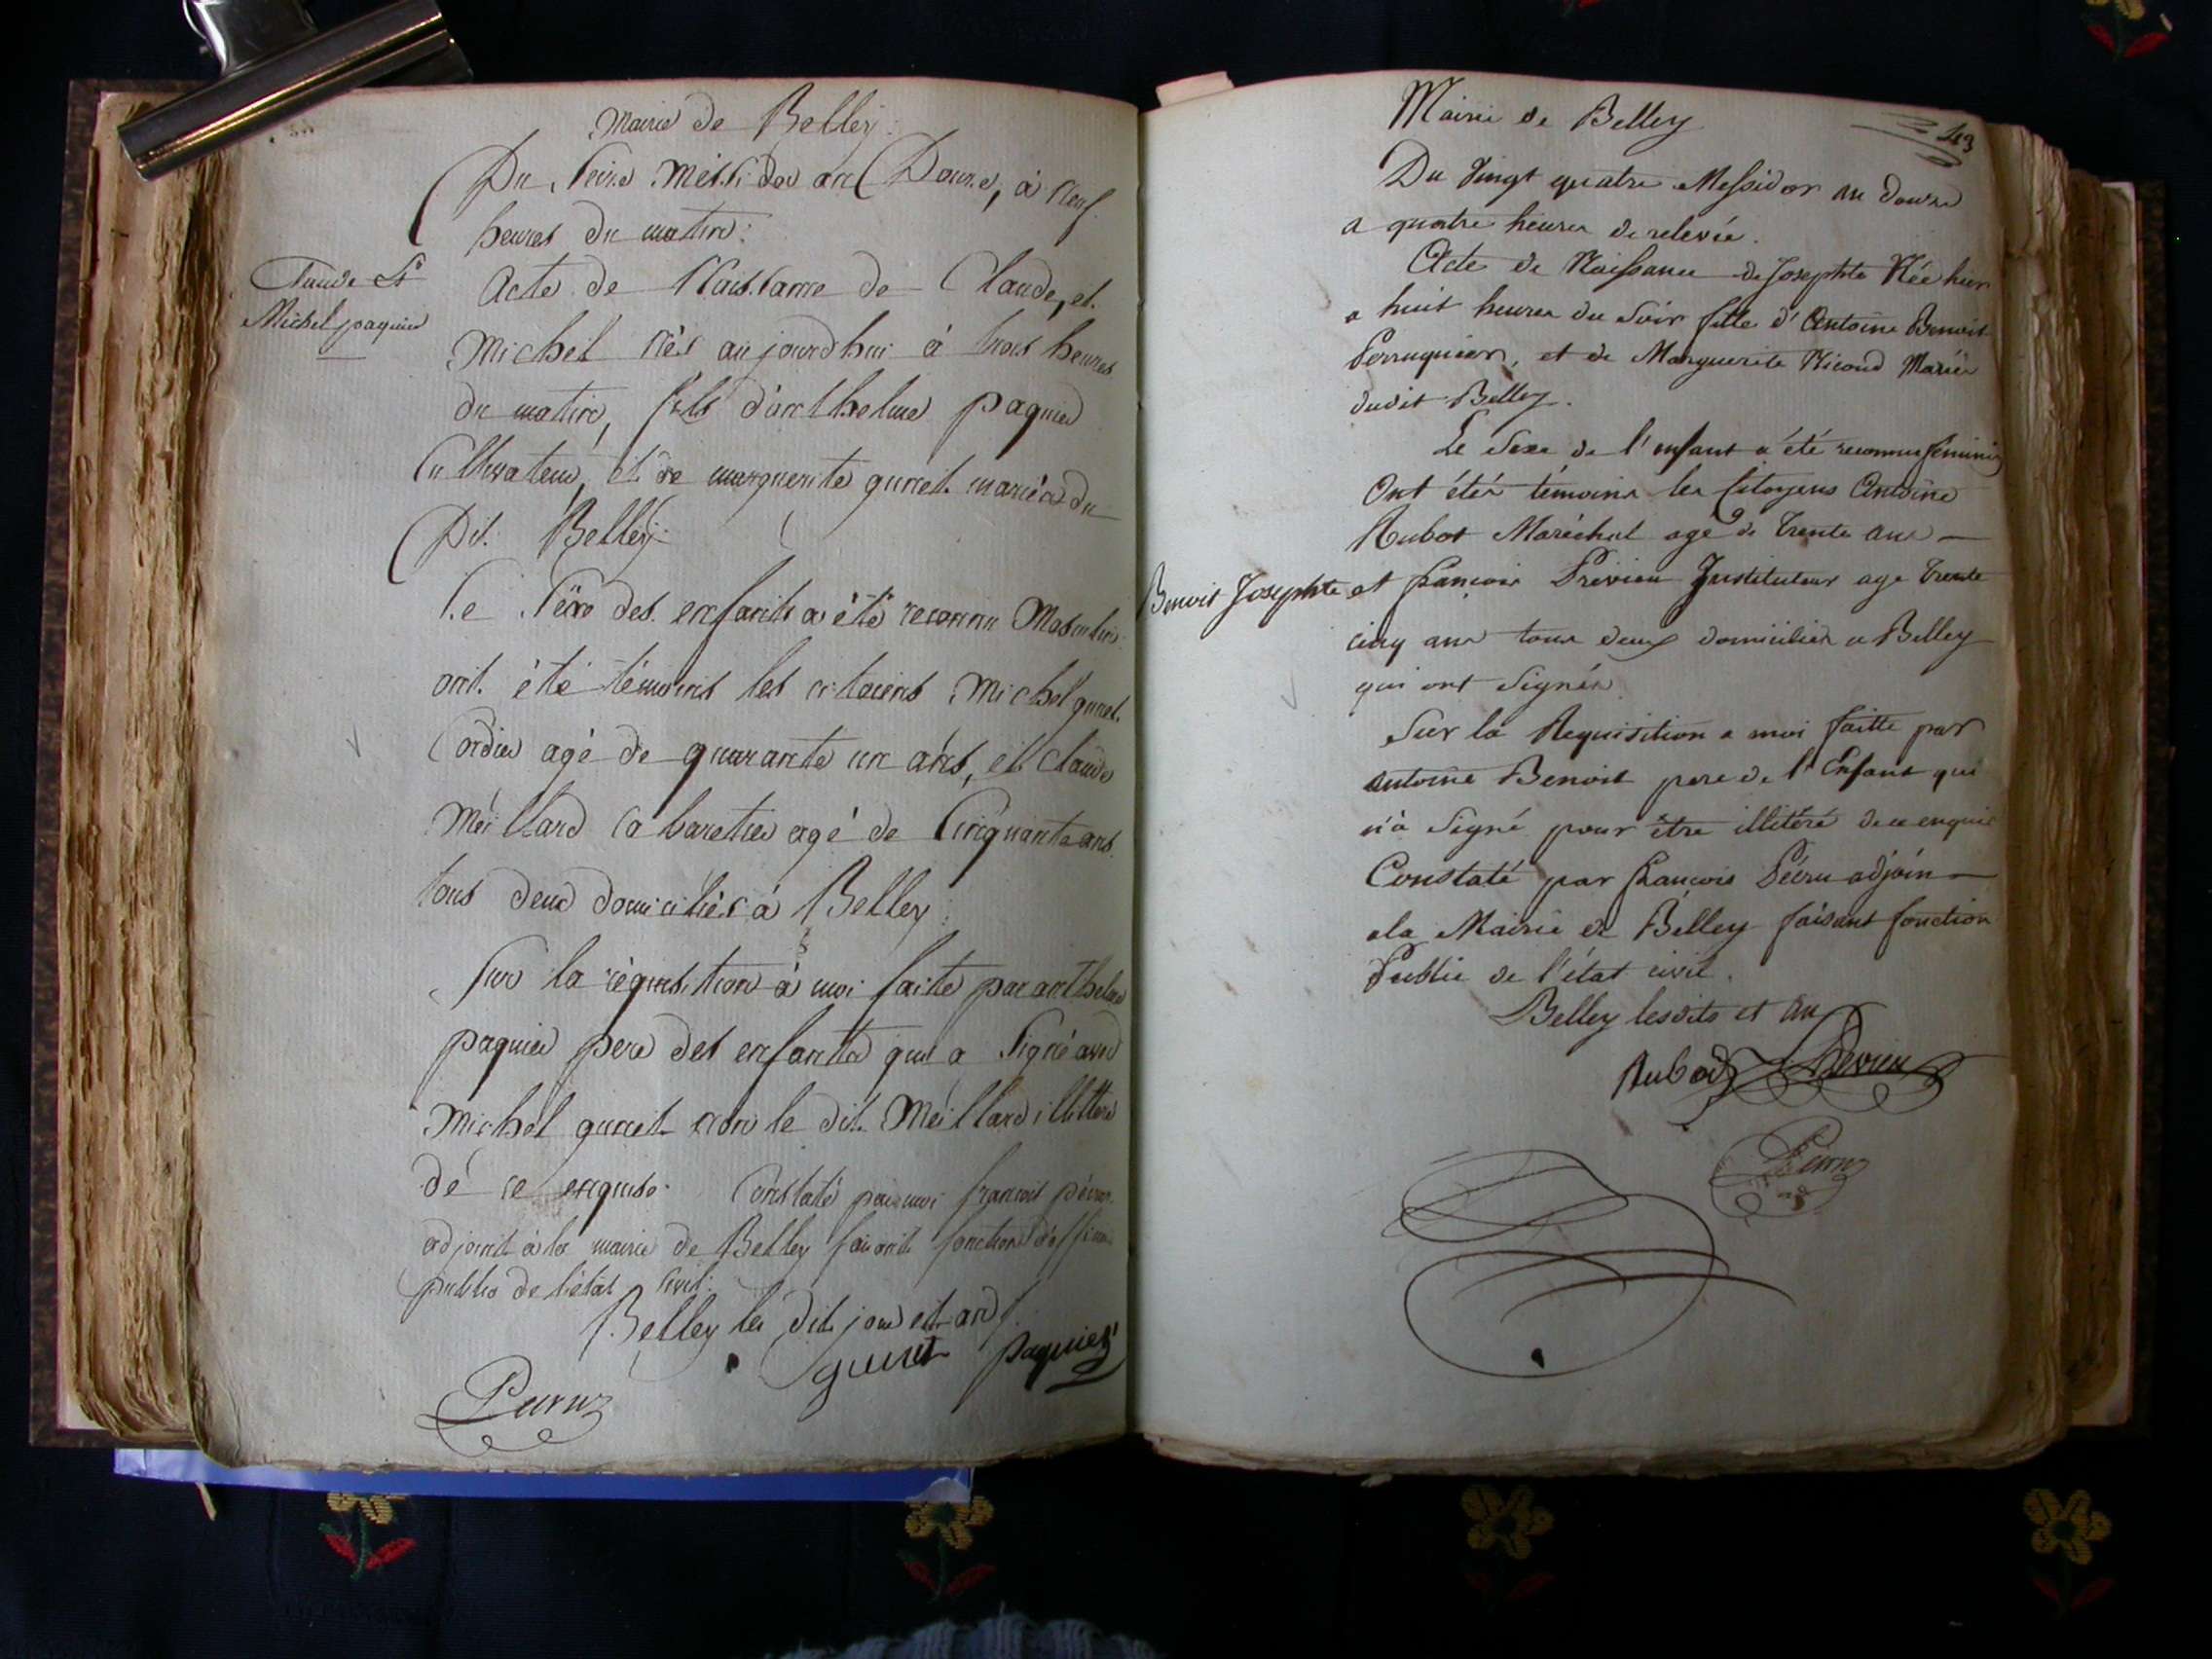 Mairie de Belley
Du Seize Messidor an Douze, à neuf
heures du matin:
Claude et
Michel paquier
Acte de Naissance de Claude, et
Michel nés aujourd'hui à trois heures
du matin, fils d'anthelme paquier
Cultivateur, et de marguerite guniet mariés du
Dit Belley.
Le Sexe des enfants a été reconnu Masculin
ont été témoins les citoiens Michel
Cordier agé de quarante un ans, et Claude
Méillard Cabaretier agé de Cinquante ans
tous deux domiciliés à Belley
Sur la réquisition à moi faite par anthelme
paquier pere des enfants qui a Signé avec
Michel non le dit Méillard illittéré
de ce enquis. Constaté par moi francois
adjoint à la mairie de Belley faisant fonction d'officier
public de l'état Civil.
Belley les dit jour et an
paquier
Mairie de Belley
43
Du Vingt quatre Messidor an douze
a quatre heures de relevée.
Acte de Naissance de Josephte Née hier
a huit heures du Soir fille d'Antoine Benoit
Perruquier, et de Marguerite Nicond Mariés
dudit Belley.
Le Sexe de l'enfant a été reconnu féminin
Ont étés témoins les Citoyens Antoine
Rubot Maréchal agé de trente ans
Benoit Josephte
et françois Prévieu Instituteur age trente
cinq ans tous deux domiciliés a Belley
qui ont Signés
Sur la Requisition a moi faitte par
antoine Benoit pere de l'Enfant qui
n'a Signé pour être illitéré de ce enquis
Constaté par françois Pécru adjoin
a la Mairie de Belley faisant fonction
Public de l'état civil.
Belley lesdits et an